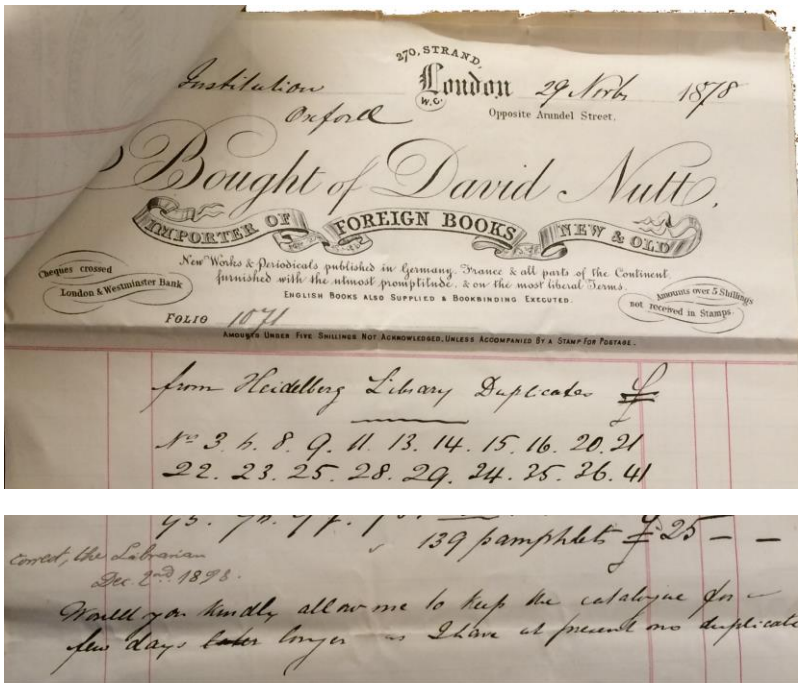 270, STRAND,
London
W.C.
Institution 29 Novbr 1878
Oxford
Opposite Arundel Street.
Bought of David Nutt,
IMPORTER OF FOREIGN BOOKS NEW & OLD
New Works & Periodicals published in Germany, France & all parts of the Continent,
furnished with the utmost promptitude, & on the most liberal Terms.
ENGLISH BOOKS ALSO SUPPLIED & BOOKBINDING EXECUTED.
Cheques crossed
London & Westminster Bank
Amounts over 5 Shillings
not received in Stamps.
FOLIO 1071
AMOUNTS UNDER FIVE SHILLINGS NOT ACKNOWLEDGED, UNLESS ACCOMPANIED BY A STAMP FOR POSTAGE.
from Heidelberg Library Duplicates £
Nos 3. 6. 8. 9. 11. 13. 14. 15. 16. 20. 21
22. 23. 25. 28. 29. 34. 35. 36. 41
139 pamphlets £ 25 — —
correct, the Librarian
Dec. 2nd. 1898.
Would you kindly allow me to keep the catalogue for a
few days later longer as I have at present no duplicate